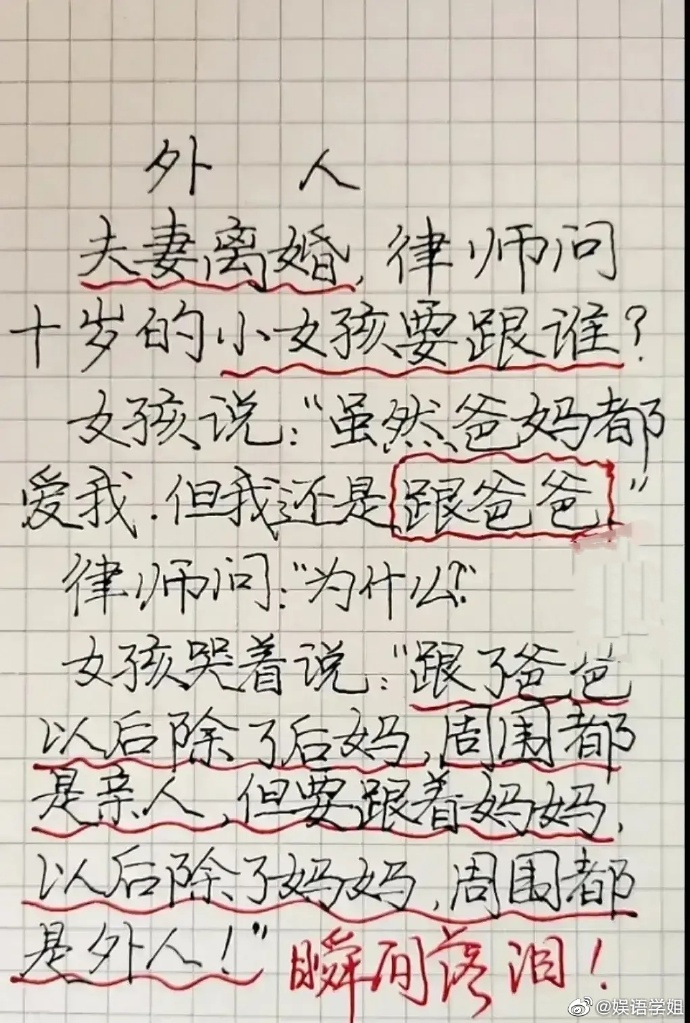 外 人
夫妻离婚,律师问
十岁的小女孩要跟谁?
女孩说:“虽然爸妈都
爱我.但我还是跟爸爸.”
律师问:“为什么?”
女孩哭着说:“跟了爸爸
以后除了后妈,周围都
是亲人,但要跟着妈妈,
以后除了妈妈,周围都
是外人!” 瞬间落泪!
@娱语学姐